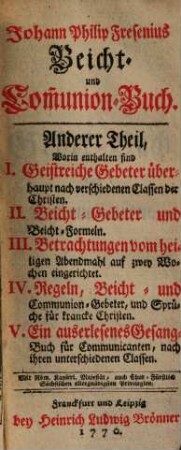 Johann Philip Fresenius
Beicht-
und
Com̃union-Buch.
Anderer Theil,
Worin enthalten sind
I. Geistreiche Gebeter über-
haupt nach verschiedenen Classen der
Christen.
II. Beicht-Gebeter und
Beicht-Formeln.
III. Betrachtungen vom hei-
ligen Abendmahl auf zwey Wo-
chen eingerichtet.
IV. Regeln, Beicht- und
Communion-Gebeter, und Sprü-
che für krancke Christen.
V. Ein auserlesenes Gesang-
Buch für Communicanten, nach
ihren unterschiedenen Classen.
Mit Röm. Kayserl. Majestät, auch Chur-Fürstl.
Sächsischen allergnädigsten Privilegien.
Franckfurt und Leipzig
bey Heinrich Ludwig Brönner
1770.